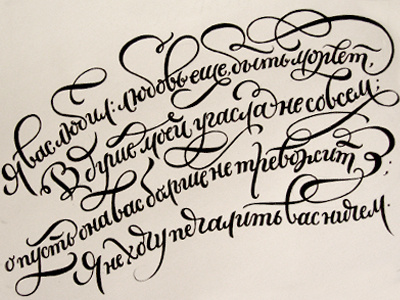 Я вас любил: любовь еще, быть может,
В душе моей угасла не совсем;
о пусть она вас больше не тревожит;
Я не хочу печалить вас ничем.